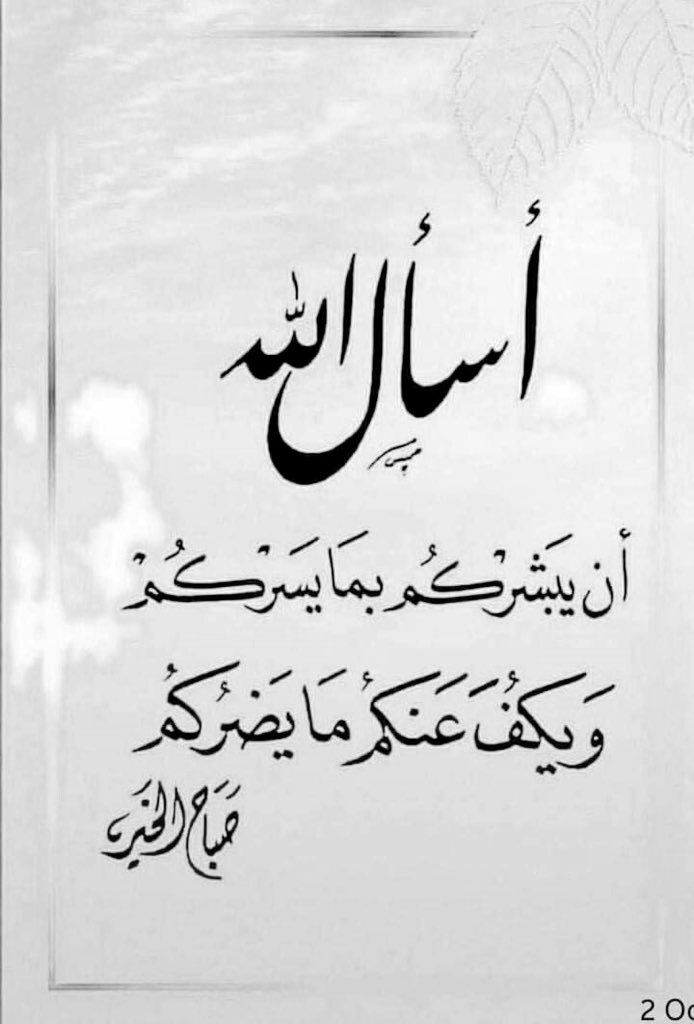 أسأل الله
أن يبشركم بما يسركم
ويكف عنكم ما يضركم
صباح الخير
2 Oc